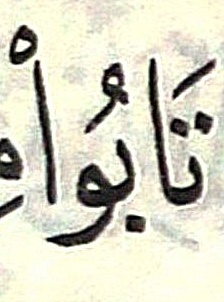 تَابُواْ